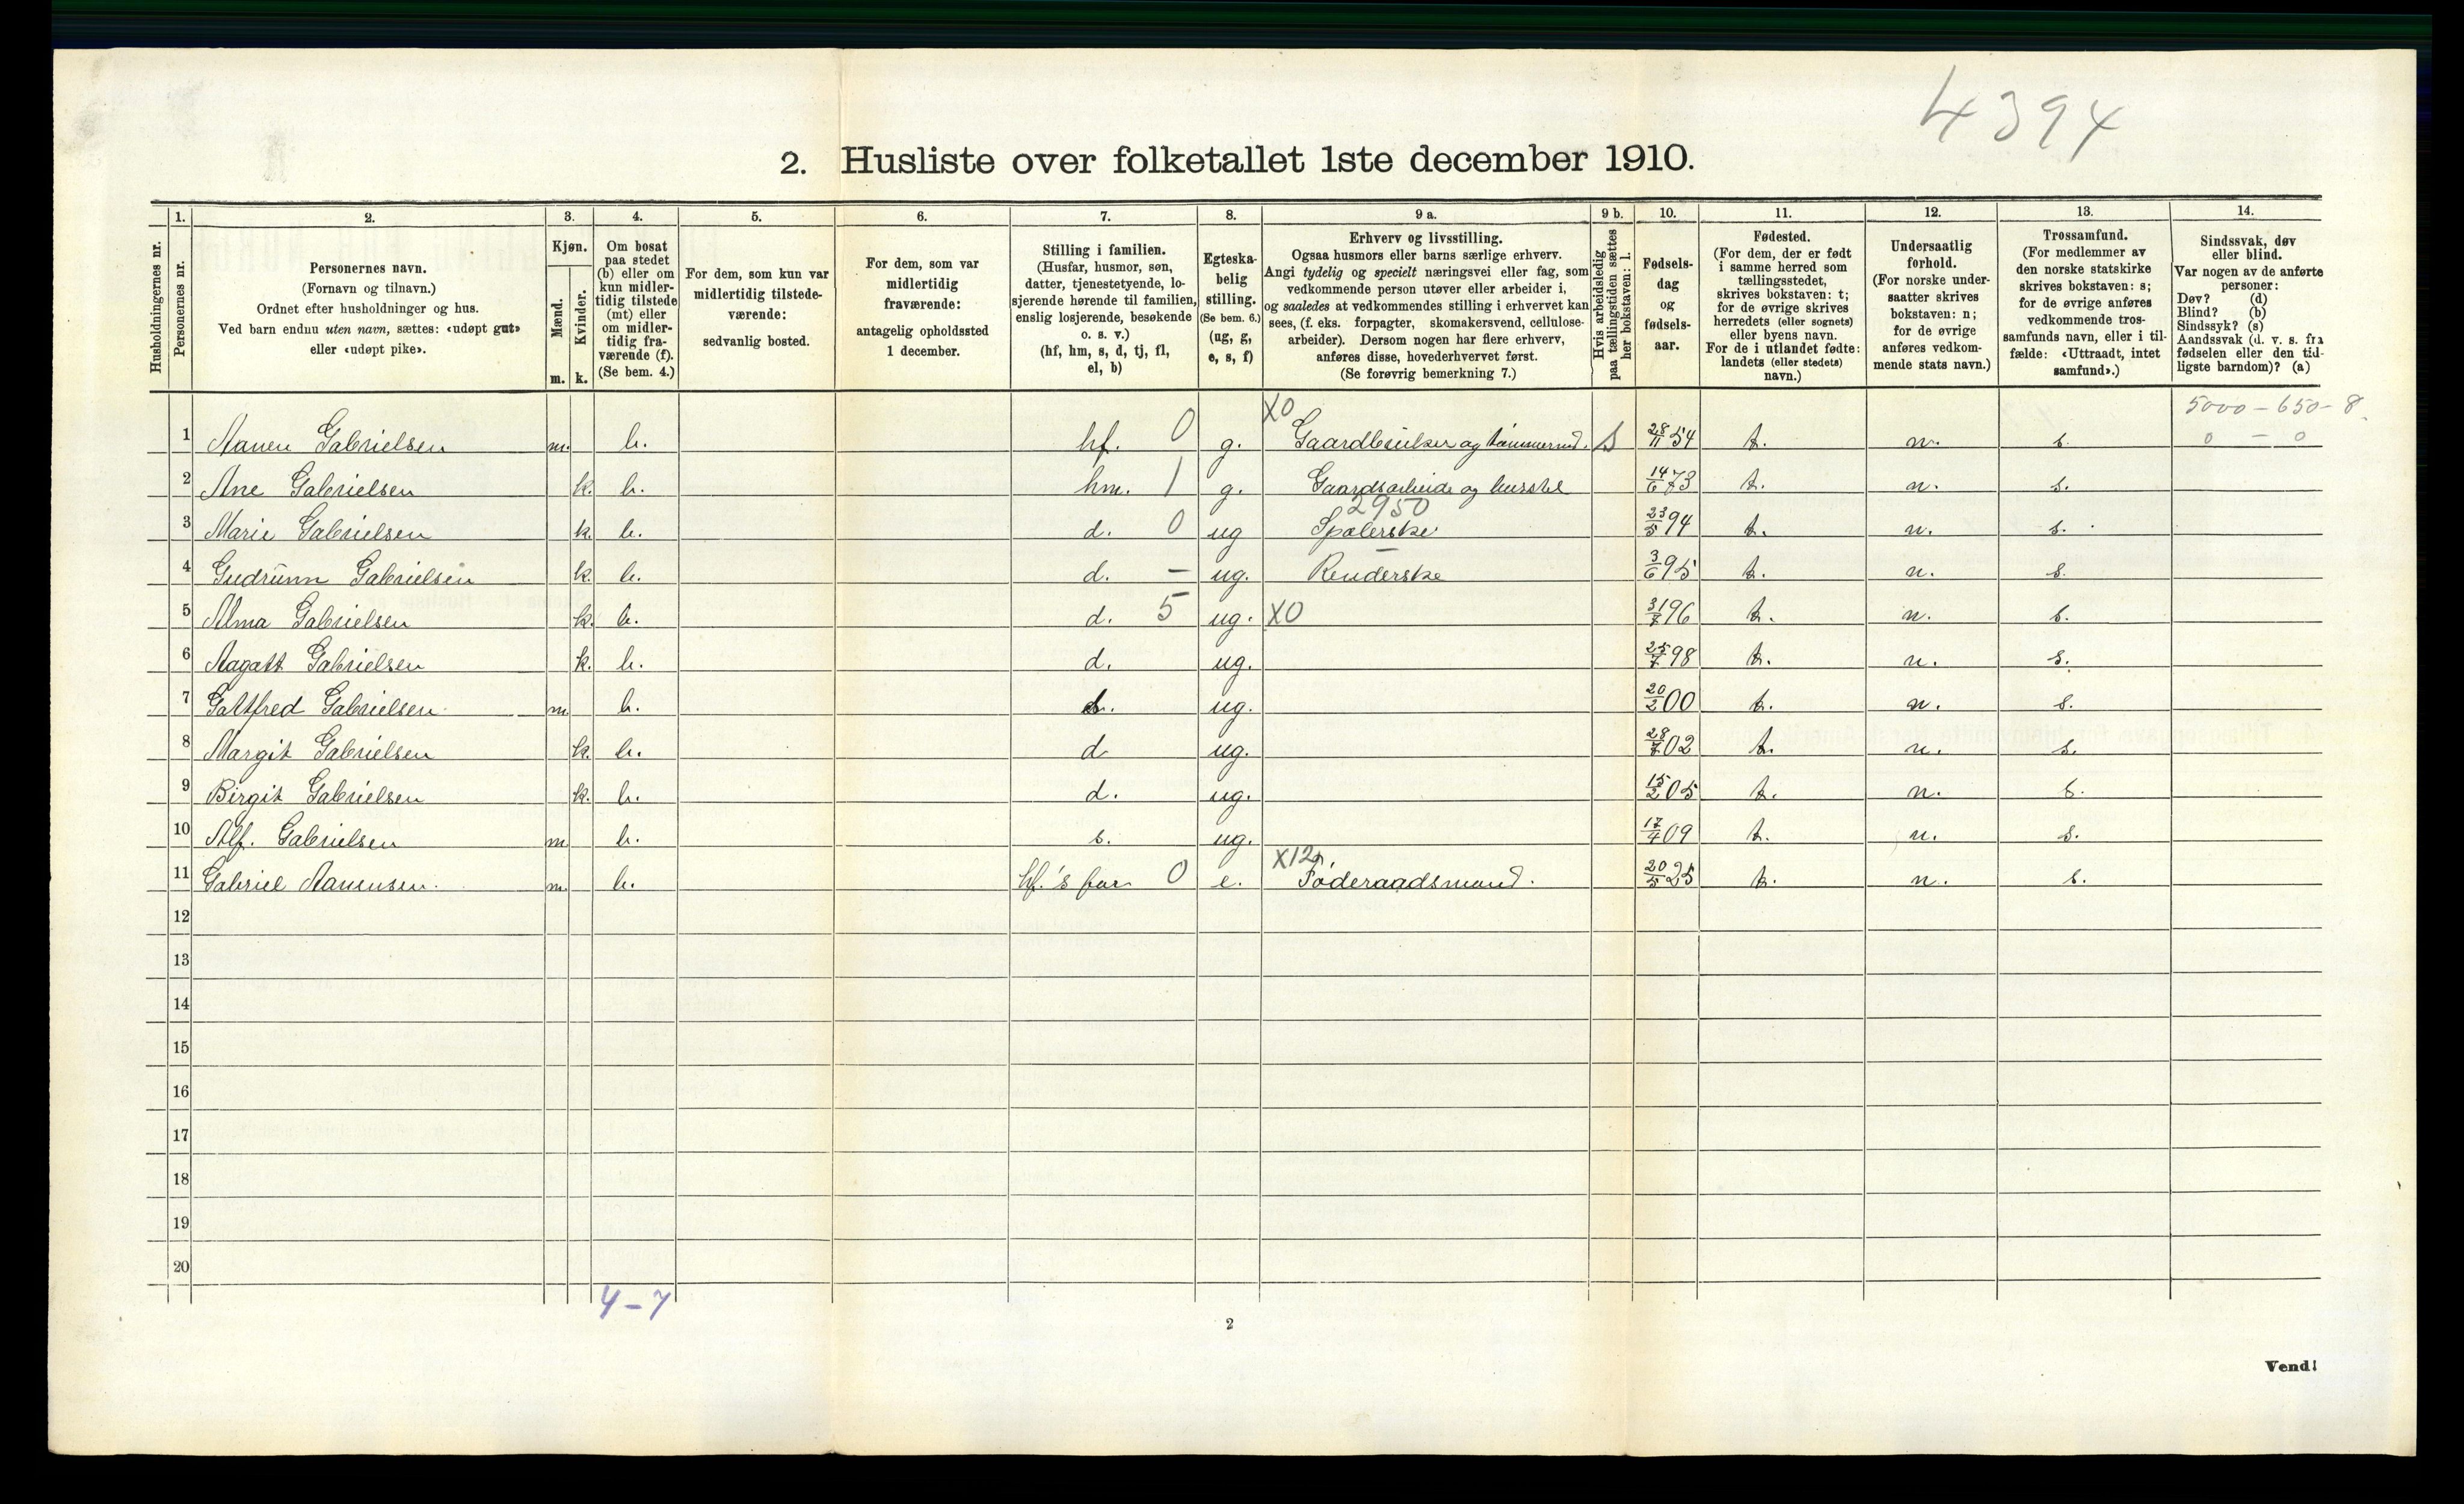 4394
2. Husliste over folketallet 1ste december 1910.
Husholdningernes nr.
1. Personernes nr.
2. Personernes navn.
(Fornavn og tilnavn.)
Ordnet efter husholdninger og hus.
Ved barn endnu uten navn, sættes: «udøpt gut»
eller «udøpt pike».
3. Kjøn.
Mænd. m.
Kvinder. k.
4. Om bosat
paa stedet
(b) eller om
kun midler-
tidig tilstede
(mt) eller
om midler-
tidig fra-
værende (f).
(Se bem. 4.)
5. For dem, som kun var
midlertidig tilstede-
værende:
sedvanlig bosted.
6. For dem, som var
midlertidig
fraværende:
antagelig opholdssted
1 december.
7. Stilling i familien.
(Husfar, husmor, søn,
datter, tjenestetyende, lo-
sjerende hørende til familien,
enslig losjerende, besøkende
o. s. v.)
(hf, hm, s, d, tj, fl,
el, b)
8. Egteska-
belig
stilling.
(Se bem. 6.)
(ug, g,
e, s, f)
9 a. Erhverv og livsstilling.
Ogsaa husmors eller barns særlige erhverv.
Angi tydelig og specielt næringsvei eller fag, som
vedkommende person utøver eller arbeider i,
og saaledes at vedkommendes stilling i erhvervet kan
sees, (f. eks. forpagter, skomakersvend, cellulose-
arbeider). Dersom nogen har flere erhverv,
anføres disse, hovederhvervet først.
(Se forøvrig bemerkning 7.)
9 b. Hvis arbeidsledig
paa tællingstiden sættes
her bokstaven: l.
10. Fødsels-
dag
og
fødsels-
aar.
11. Fødested.
(For dem, der er født
i samme herred som
tællingsstedet,
skrives bokstaven: t;
for de øvrige skrives
herredets (eller sognets)
eller byens navn.
For de i utlandet fødte:
landets (eller stedets)
navn.)
12. Undersaatlig
forhold.
(For norske under-
saatter skrives
bokstaven: n;
for de øvrige
anføres vedkom-
mende stats navn.)
13. Trossamfund.
(For medlemmer av
den norske statskirke
skrives bokstaven: s;
for de øvrige anføres
vedkommende tros-
samfunds navn, eller i til-
fælde: «Uttraadt, intet
samfund».)
14. Sindssvak, døv
eller blind.
Var nogen av de anførte
personer:
Døv? (d)
Blind? (b)
Sindssyk? (s)
Aandssvak (d. v. s. fra
fødselen eller den tid-
ligste barndom)? (a)
X0 5000 - 650 - 8
1 Aanen Gabrielsen m. b. hf. 0 g. Gaardbruker og tømmermd. 28/11 54 t. n. s. 0 - 0
2 Ane Gabrielsen k. b. hm. 1 g. Gaardsarbeide og husstel 14/6 73 t. n. s.
2950
3 Marie Gabrielsen k. b. d. 0 ug Spolerske 23/5 94 t. n. s.
4 Gudrunn Gabrielsen k. b. d. - ug. Renderske 3/6 95 t. n. s.
5 Alma Gabrielsen k. b. d. 5 ug. X0 31/7 96 t. n. s.
6 Aagatt Gabrielsen k. b. d. ug. 25/7 98 t. n. s.
7 Gattfred Gabrielsen m b. s. ug. 20/2 00 t. n. s.
8 Margit Gabrielsen k. b. d ug. 28/7 02 t. n. s.
9 Birgit Gabrielsen k. b. d. ug. 15/2 05 t. n. s.
10 Alf. Gabrielsen m b. s. ug. 17/4 09 t. n. s.
X12
11 Gabriel Aanensen. m b. hf.'s far 0 e. Føderaadsmand. 20/5 25 t. n. s.
12
13
14
15
16
17
18
19
20
4-7
2
Vend!